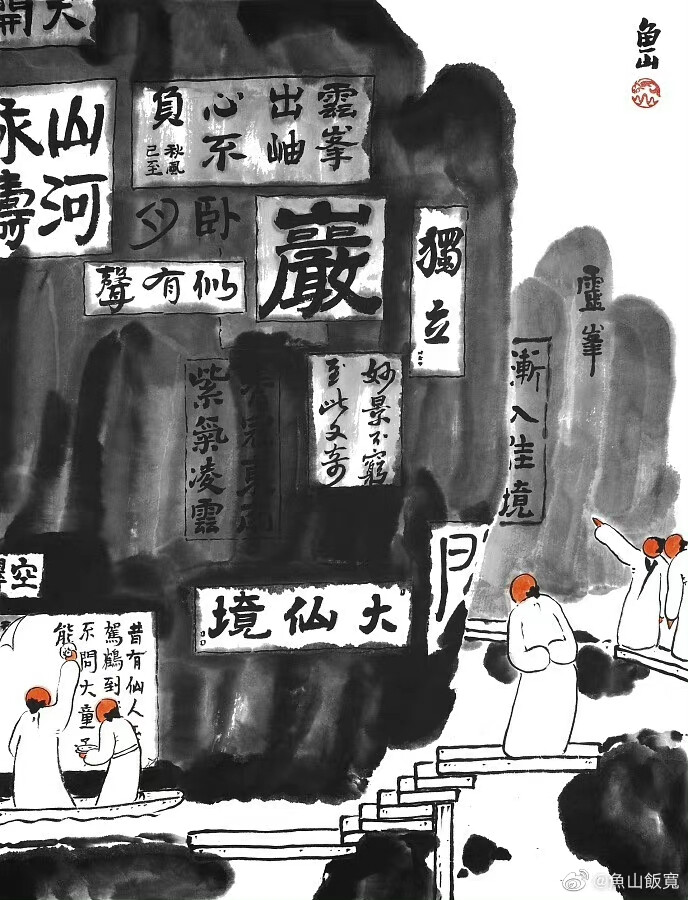 魚山
天開
山河
永壽
雲峯
出岫
心不
負
秋風
己至
卧
巖
獨立
似有聲
靈峯
漸入佳境
妙景不窮
至此又奇
冠東南
紫氣凌雲
大仙境
空
昔有仙人
駕鶴到
不問大童
能
@魚山飯寬